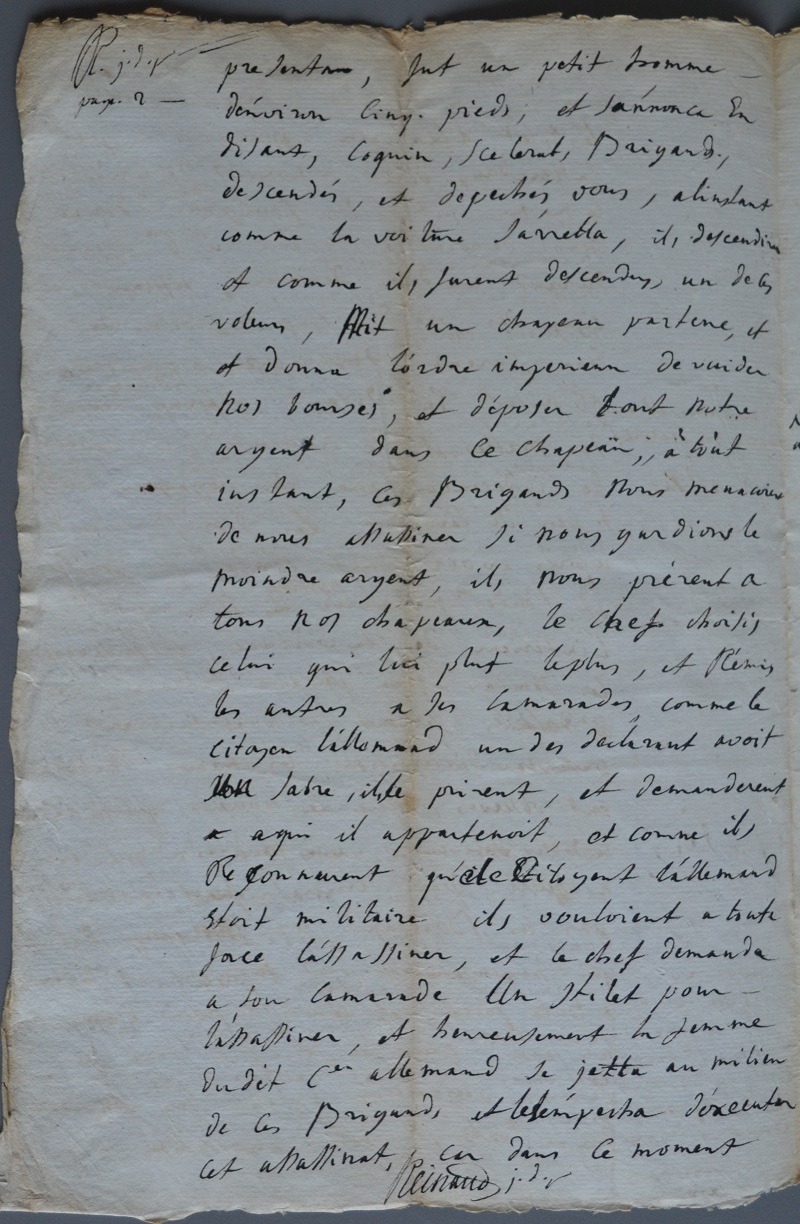 R. j. d. p
page. 2 —
presenta, fut un petit homme —
dénviron Cinq. pieds, et sánnonca En
disant, Coquin, Scelerat, Brigands,
descendés, et depechés vous, alinstant
comme la voiture sárretta, ils descendiren
et comme ils furent descendus, un de ces
voleurs, Mit un chapeau parterre, et
et donna lórdre imperieux de vuider
Nos bourses, et déposer tout notre
argent dans Ce chapeau; à tout
instant, ces Brigands Nous menacoient
de nous assassiner Si nous gardions le
moindre argent, ils Nous prirent a
tous Nos chapeaux, le chef choisis
celui qui lui plut leplus, et Rémis
les autres a ses Camarades, comme le
Citoyen lállemand un des declarant avoit
Un Sabre, ils le prirent, et demanderent
aqui il appartenoit, et comme ils
Reconneurent que le Citoyent lállemand
étoit militaire ils vouloient a toute
force lássassiner, et le chef demanda
a son Camarade Un Stilet pour —
lássassiner, et heureusement la femme
dudit Cen allemand se jetta au milieu
de ces Brigands et les émpecha déxecuter
cet assassinat, car dans Ce moment
Reinaud j. d. p